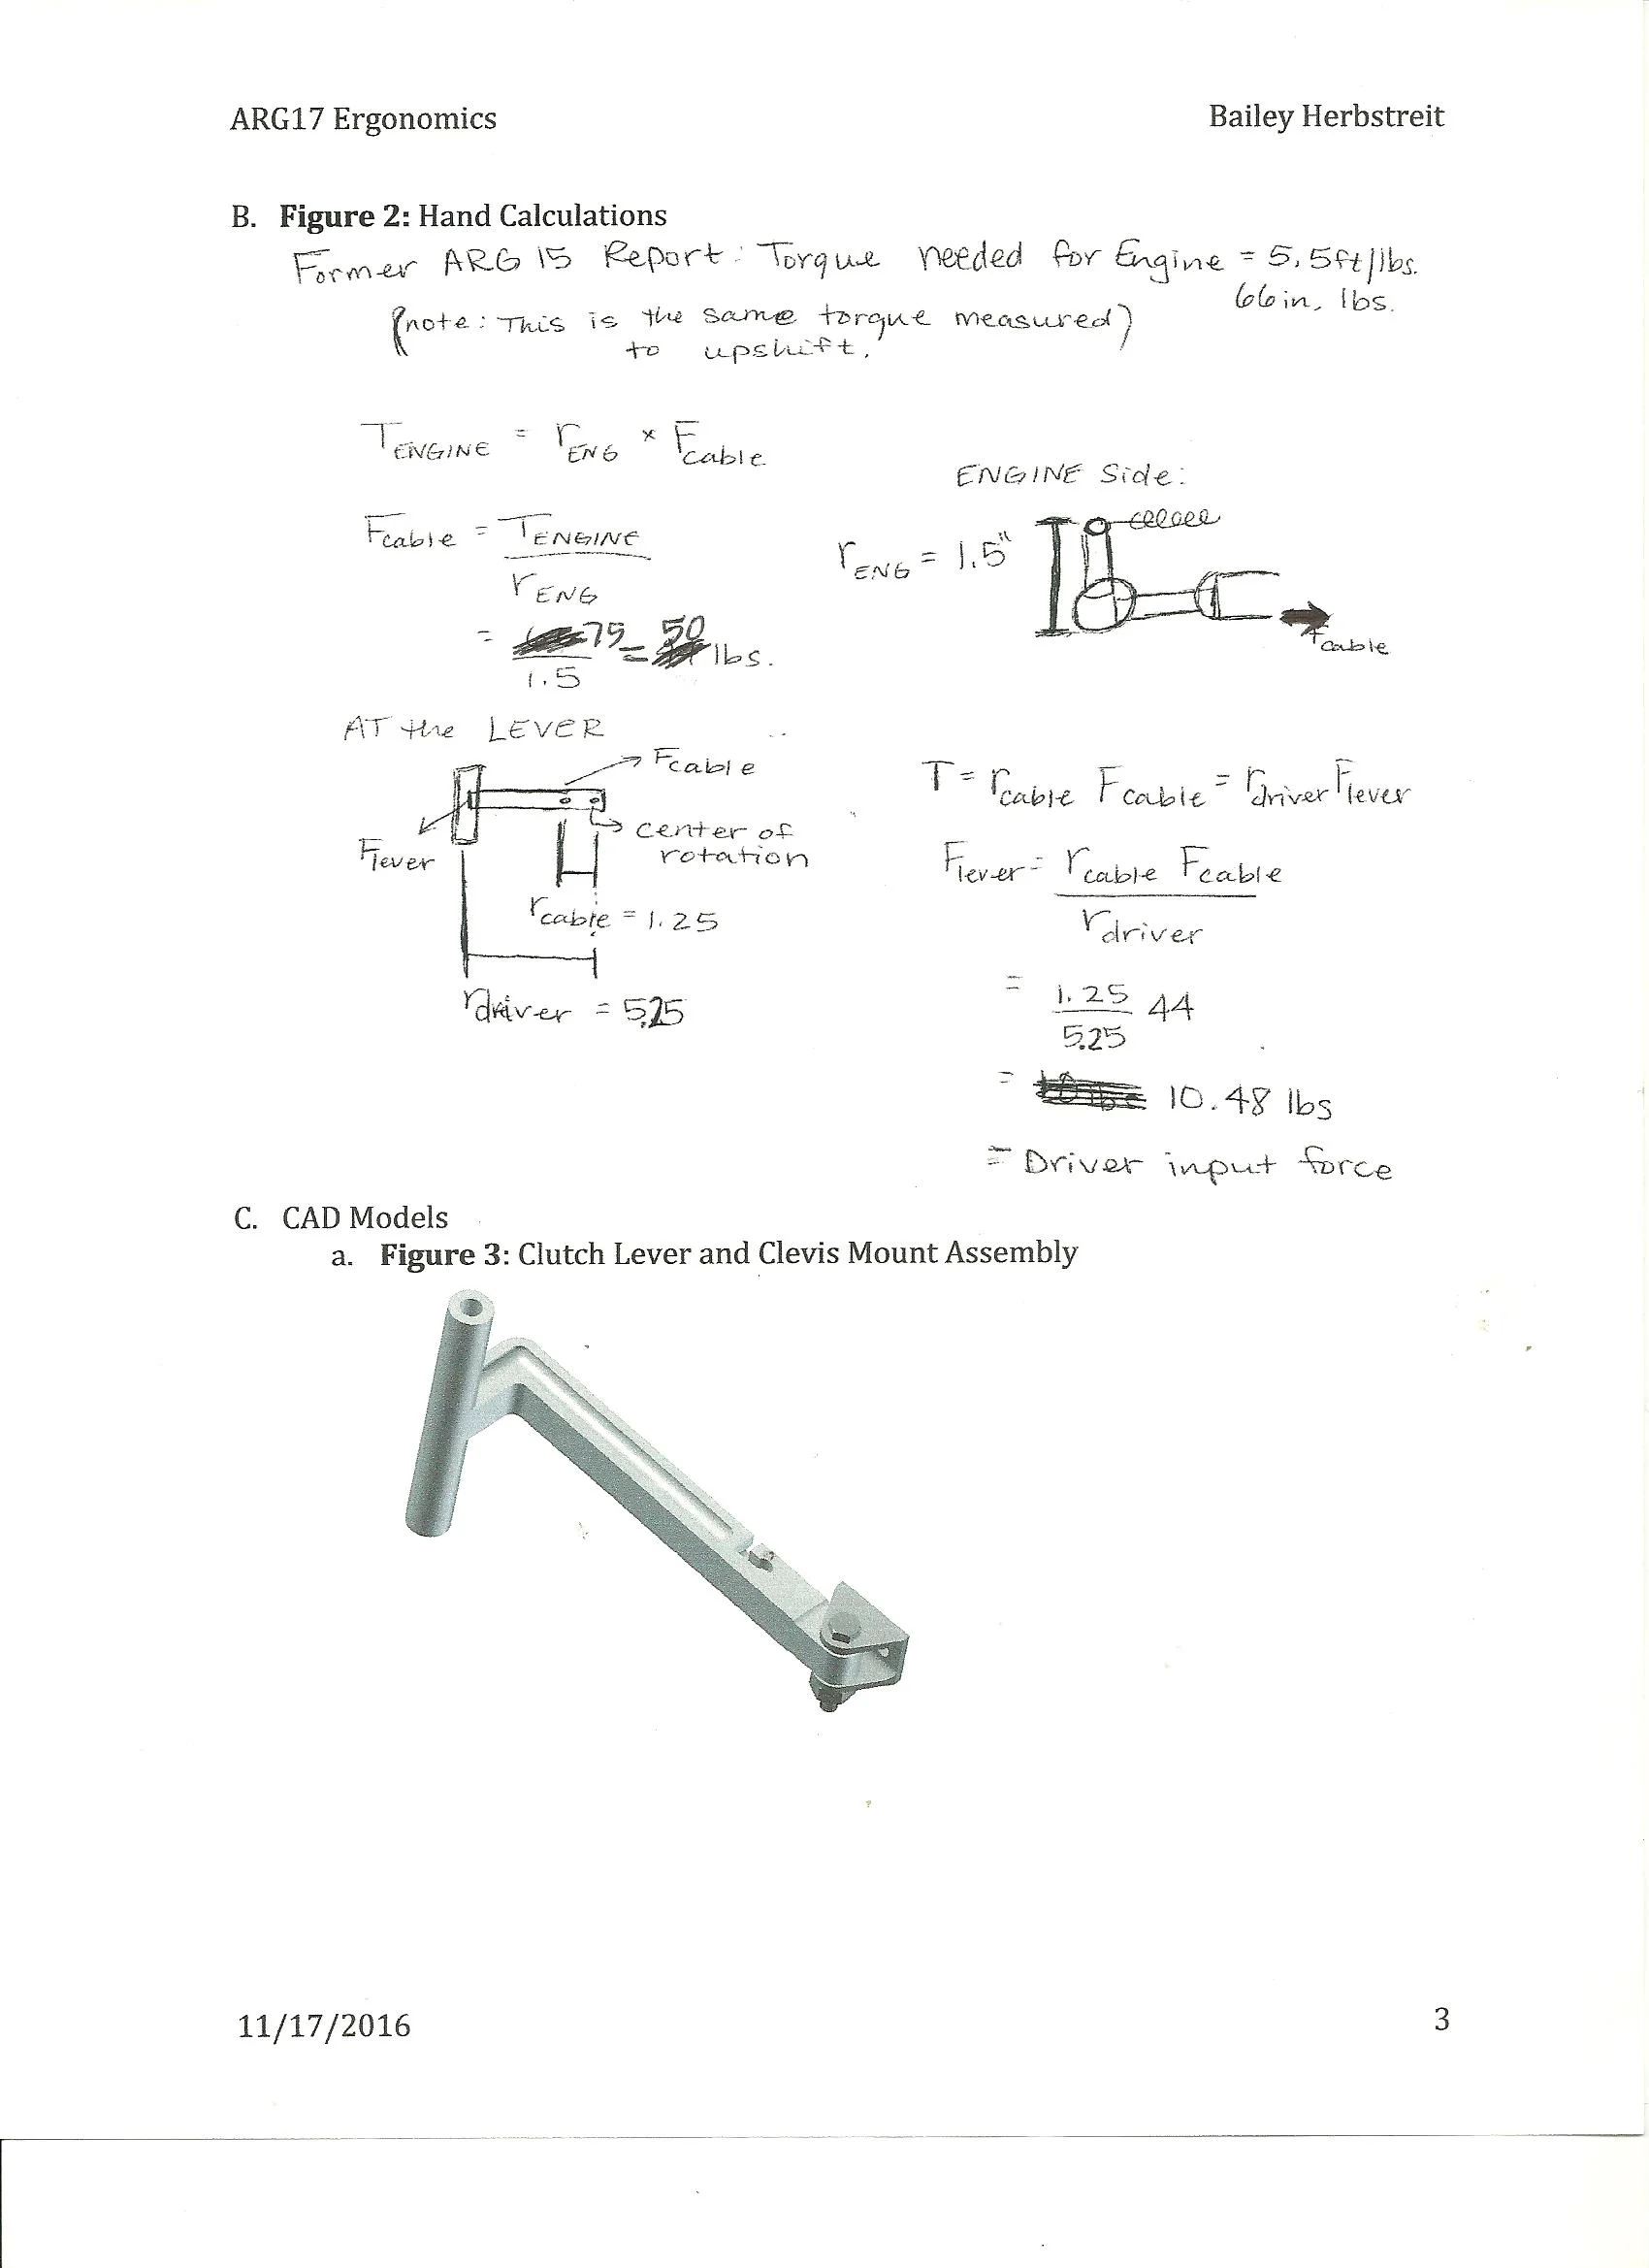 ARG17 Ergonomics
Bailey Herbstreit
B. Figure 2: Hand Calculations
Former ARG 15 Report: Torque needed for Engine = 5.5ft/lbs.
66in. lbs.
(note: This is the same torque measured)
to upshift.
TENGINE = rENG × Fcable
Fcable = TENGINE
rENG
= 75 = 50 lbs.
1.5
ENGINE Side:
rENG = 1.5"
Fcable
AT the LEVER
Fcable
Flever
center of
rotation
rcable = 1.25
rdriver = 5.25
T = rcable Fcable = rdriver Flever
Flever = rcable Fcable
rdriver
= 1.25 44
5.25
= 10.48 lbs
= Driver input force
C. CAD Models
a. Figure 3: Clutch Lever and Clevis Mount Assembly
11/17/2016
3